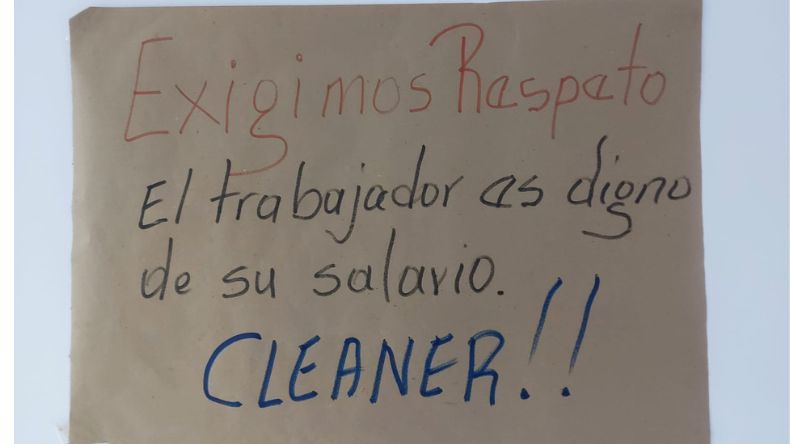 Exigimos Respeto
El trabajador es digno
de su salario.
CLEANER!!